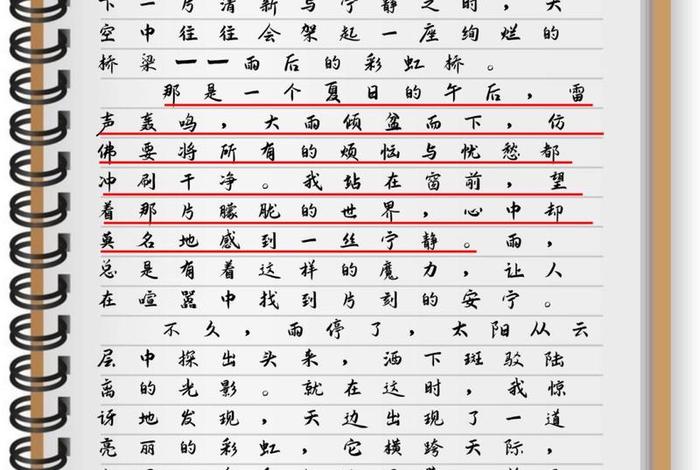 下一片清新与宁静之时，天
空中往往会架起一座绚烂的
桥梁——雨后的彩虹桥。
那是一个夏日的午后，雷
声轰鸣，大雨倾盆而下，仿
佛要将所有的烦恼与忧愁都
冲刷干净。我站在窗前，望
着那片朦胧的世界，心中却
莫名地感到一丝宁静。雨，
总是有着这样的魔力，让人
在喧嚣中找到片刻的安宁。
不久，雨停了，太阳从云
层中探出头来，洒下斑驳陆
离的光影。就在这时，我惊
讶地发现，天边出现了一道
亮丽的彩虹，它横跨天际，